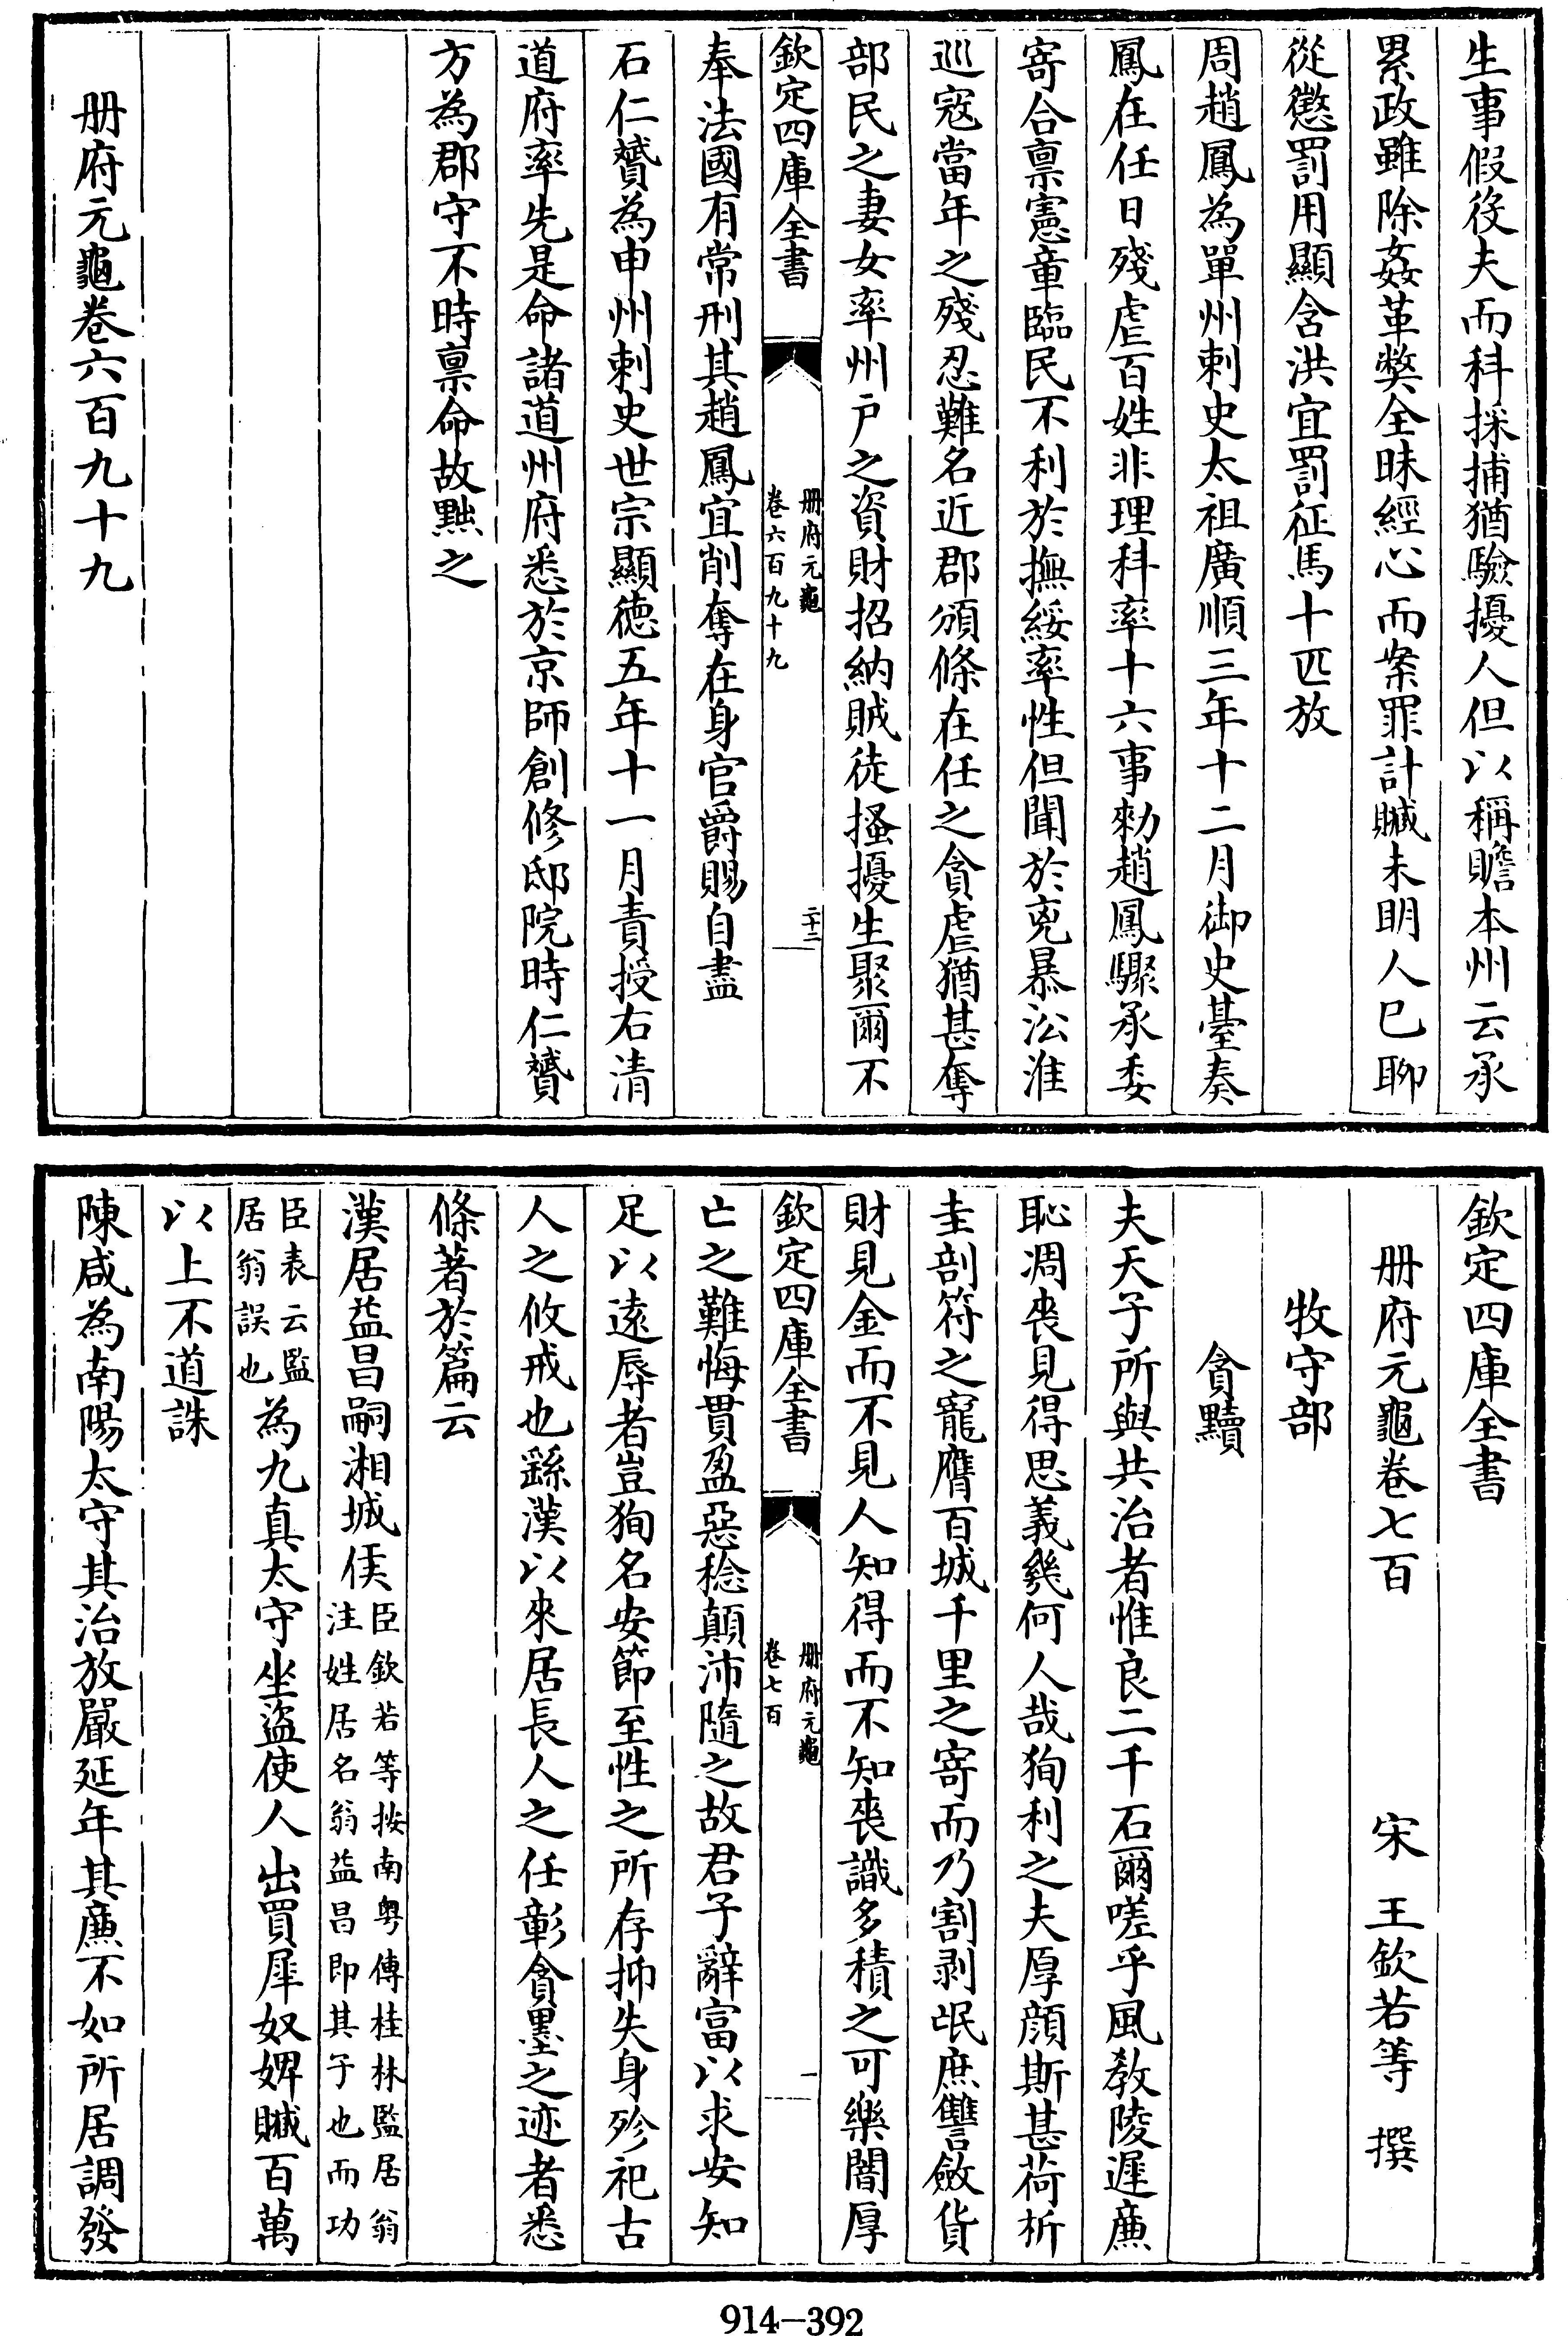 生事假役夫而科採捕猶驗擾人但以稱贍本州云承
累政雖除姦革獘全昧經心而案罪計贓未明人已聊
從懲罰用顯含洪宜罰征馬十匹放
周趙鳳為單州刺史太祖廣順三年十二月御史臺奏
鳳在任日殘虐百姓非理科率十六事勑趙鳳驟承委
寄合禀憲章臨民不利於撫綏率性但聞於兇暴㳂淮
巡寇當年之殘忍難名近郡頒條在任之貪虐猶甚奪
部民之妻女率州戶之資財招納賊徒搔擾生聚爾不
欽定四庫全書
册府元龜
卷六百九十九
二十二
奉法國有常刑其趙鳳宜削奪在身官爵賜自盡
石仁贇為申州刺史世宗顯德五年十一月責授右清
道府率先是命諸道州府悉於京師創修邸院時仁贇
方為郡守不時禀命故黜之
册府元龜卷六百九十九
欽定四庫全書
册府元龜卷七百 宋 王欽若等 撰
牧守部
貪黷
夫天子所與共治者惟良二千石爾嗟乎風教陵遲廉
恥凋喪見得思義幾何人哉狥利之夫厚顔斯甚荷析
圭剖符之寵膺百城千里之寄而乃割剥氓庶讐斂貨
財見金而不見人知得而不知喪識多積之可樂闇厚
欽定四庫全書
册府元龜
卷七百
一
亡之難悔貫盈惡稔顛沛隨之故君子辭富以求安知
足以遠辱者豈狥名安節至性之所存抑失身殄祀古
人之攸戒也繇漢以來居長人之任彰貪墨之迹者悉
條著於篇云
漢居益昌嗣湘城侯臣欽若等按南粤傳桂林監居翁
注姓居名翁益昌即其子也而功
臣表云監
居翁誤也為九真太守坐盜使人出買犀奴婢贓百萬
以上不道誅
陳咸為南陽太守其治放嚴延年其廉不如所居調發
914-392